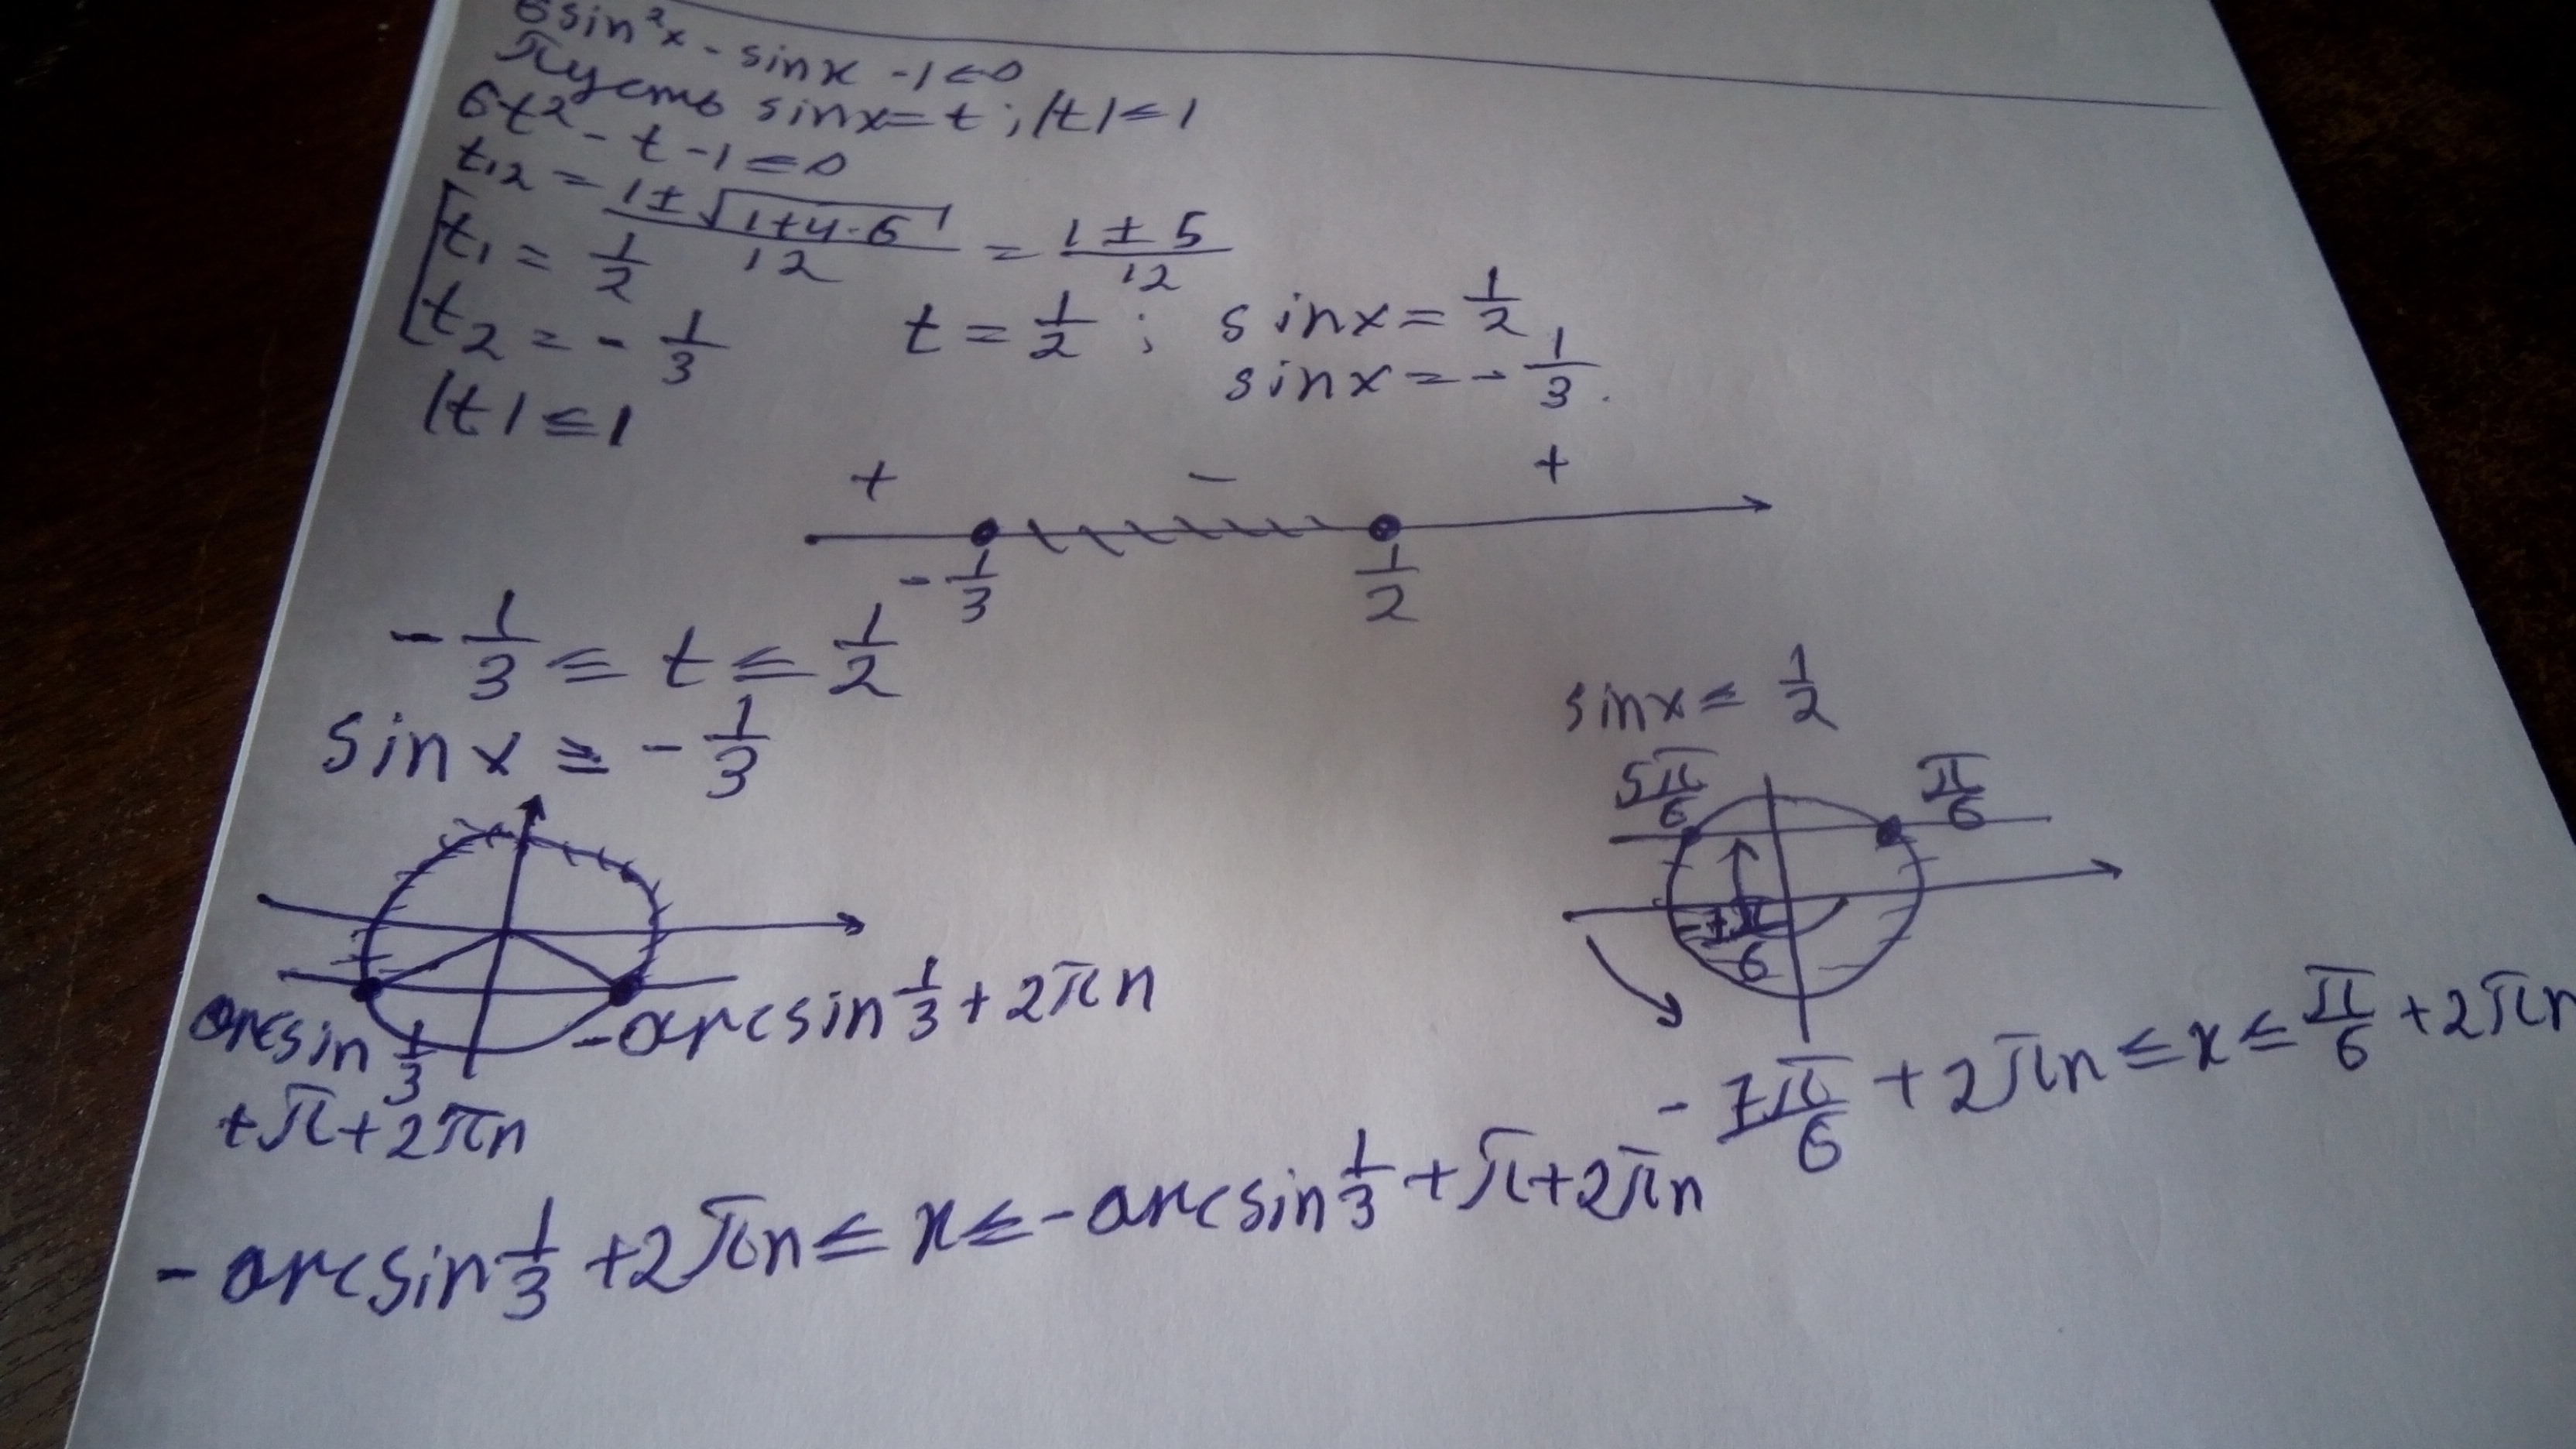 6sin²x - sinx - 1 ≤ 0
Пусть sinx = t ; |t| ≤ 1
6t² - t - 1 ≤ 0
t₁,₂ = (1 ± √(1+4·6))/12 = (1 ± 5)/12
[t₁ = 1/2
t₂ = - 1/3
|t| ≤ 1
t = 1/2 ; sinx = 1/2
sinx = - 1/3.
+ - +
- 1/3 1/2
- 1/3 ≤ t ≤ 1/2
sinx ≥ - 1/3
arcsin 1/3 + π + 2πn
- arcsin 1/3 + 2πn
sinx ≤ 1/2
5π/6 π/6
- 7π/6
- 7π/6 + 2πn ≤ x ≤ π/6 + 2πn
- arcsin 1/3 + 2πn ≤ x ≤ - arcsin 1/3 + π + 2πn